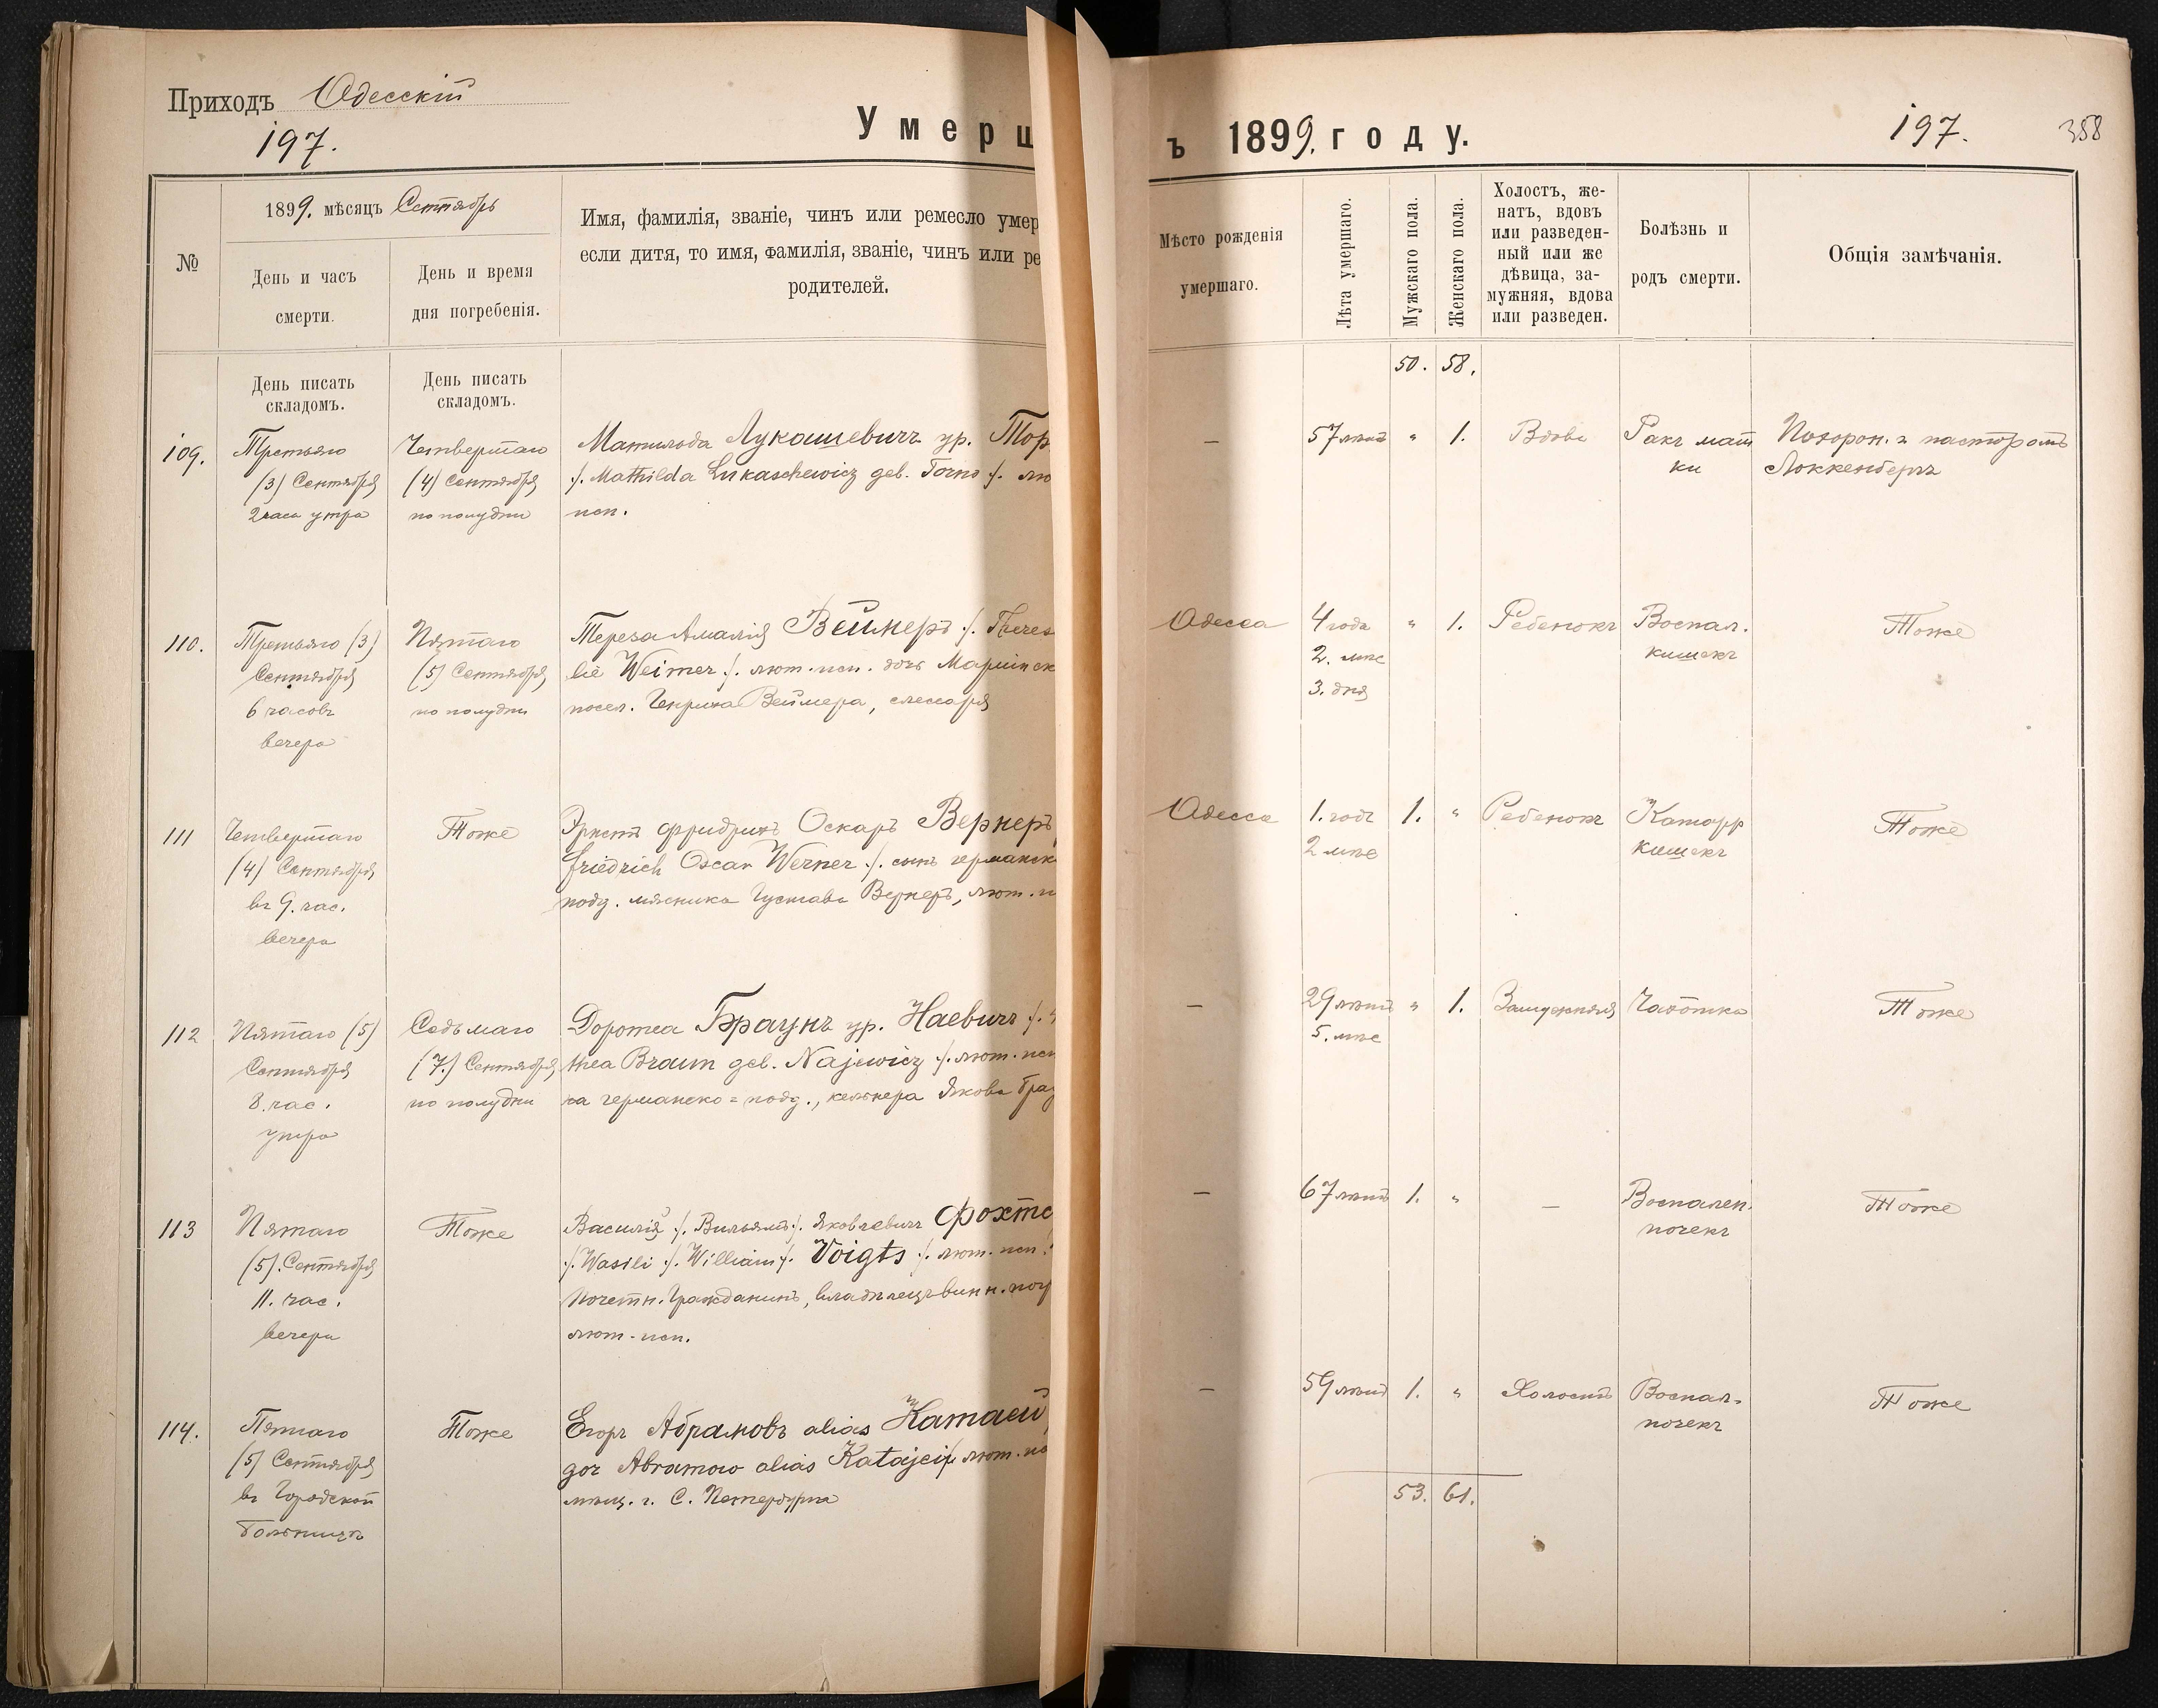 Приходъ Одесскій
197.
Умерш
ъ 1899. году.
197.
358
№
1899. мѣсяцъ Сентябрь
День и часъ
смерти.
День и время
дня погребенія.
Имя, фамилія, званіе, чинъ или ремесло умер
если дитя, то имя, фамилія, званіе, чинъ или ре
родителей.
Мѣсто рожденія
умершаго.
Лѣта умершаго.
Мужскаго пола.
Женскаго пола.
Холостъ, же-
натъ, вдовъ
или разведен-
ный или же
дѣвица, за-
мужняя, вдова
или разведен.
Болѣзнь и
родъ смерти.
Общія замѣчанія.
День писать
складомъ.
День писать
складомъ.
50. 58.
109.
Третьяго
(3) Сентября
2 часа утра
Четвертаго
(4) Сентября
по полудни
Матильда Лукашевичъ ур. Тор
./. Mathilda Lukaschewicz geb. Torno ./. лю
исп.
—
57 лѣтъ
" 1.
Вдова
Ракъ мат
ки
Похорон. пасторомъ
Локкенбергъ
110.
Третьяго (3)
Сентября
6 часовъ
вечера
Пятаго
(5) Сентября
по полудни
Тереза Амалія Веймеръ ./. Theres
lie Weimer ./. лют. исп. дочь Маріинск
посел. Генриха Веймера, слесаря
Одесса
4 года
2. мѣс
3. дня
" 1.
Ребенокъ
Воспал.
кишекъ
Тоже
111
Четвертаго
(4) Сентября
въ 9. час.
вечера
Тоже
Эрнстъ Фридрихъ Оскаръ Вернеръ
Friedrich Oscar Werner ./. сынъ германск
подд. мясника Густава Вернеръ, лют. и
Одесса
1. годъ
2 мѣс
1. "
Ребенокъ
Катарр
кишекъ
Тоже
112
Пятаго (5)
Сентября
8. час.
утра
Седьмаго
(7.) Сентября
по полудни
Доротеа Браунъ ур. Наевичъ ./.
thea Braun geb. Najewicz ./. лют. исп
ка германско=подд., кельнера Якова Брау
—
29 лѣтъ
5. мѣс
" 1.
Замужняя
Чахотка
Тоже
113
Пятаго
(5). Сентября
11. час.
вечера
Тоже
Василій ./. Вильямъ ./. Яковлевичъ Фохтс
./. Wasili ./. William ./. Voigts ./. лют. исп.
Почетн. Гражданинъ, владѣлецъ винн. пог
лют. исп.
—
67 лѣтъ
1. "
—
Воспален.
почекъ
Тоже
114.
Пятаго
(5) Сентября
въ Городской
больницѣ
Тоже
Егоръ Абрамовъ alias Катаей
gor Abramow alias Katajei ./. лют. ис
мѣщ. г. С. Петербурга
—
59 лѣтъ
1. "
Холостъ
Воспал.
почекъ
Тоже
53. 61.